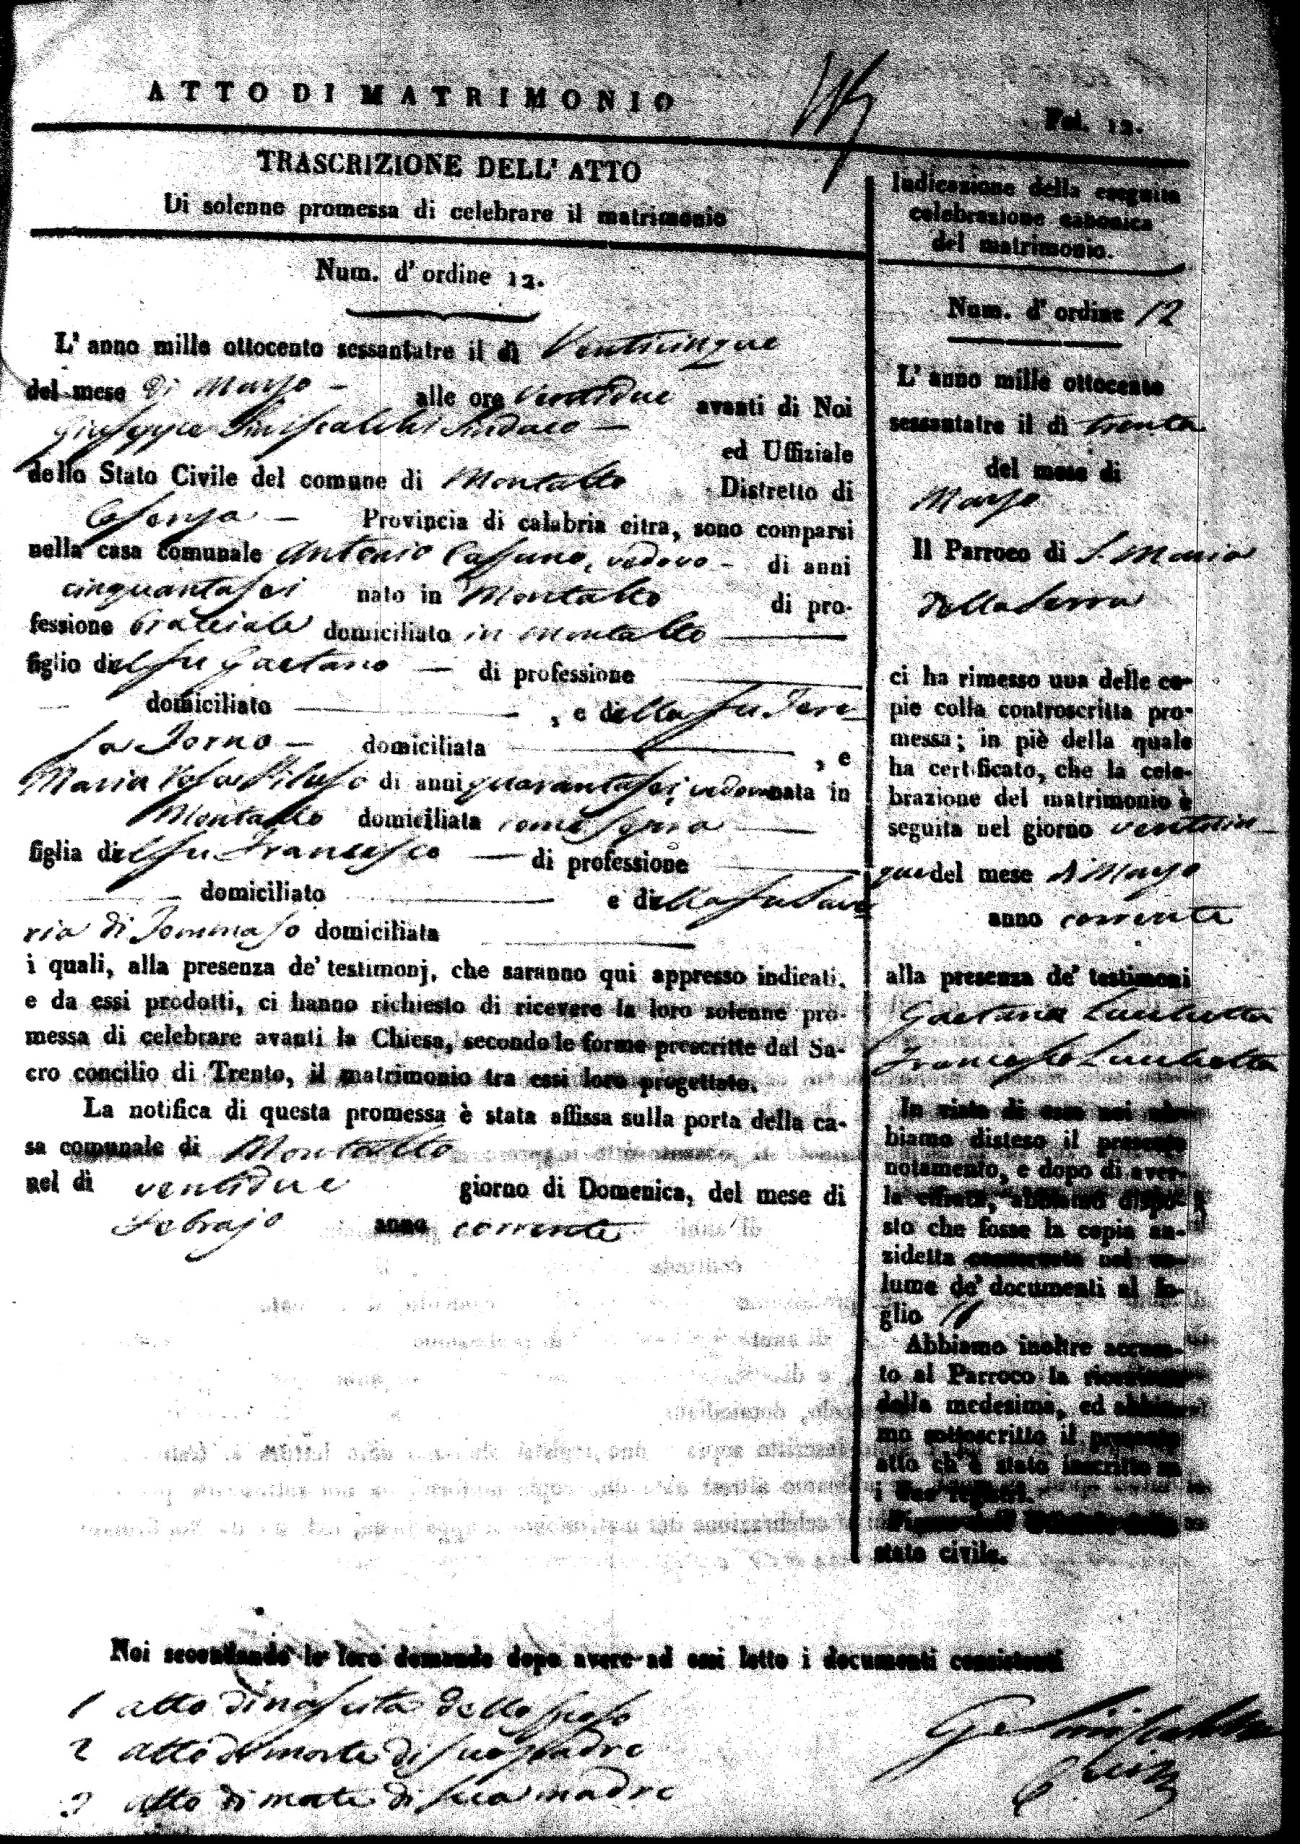 ATTO DI MATRIMONIO
Fol. 12.
TRASCRIZIONE DELL' ATTO
Di solenne promessa di celebrare il matrimonio
Num. d' ordine 12.
L' anno mille ottocento sessantatre il dì Venticinque
del mese di Marzo alle ore ventidue avanti di Noi
Giuseppe Siniscalchi Sindaco ed Uffiziale
dello Stato Civile del comune di Montalto Distretto di
Cosenza Provincia di calabria citra, sono comparsi
nella casa comunale Antonio Cassano, vedovo di anni
cinquantasei nato in Montalto di pro-
fessione bracciale domiciliato in Montalto
figlio del fu Gaetano di professione
domiciliato , e della fu Tere-
sa Iorno domiciliata , e
Maria Rosa Piluso di anni quarantasei, vedova nata in
Montalto domiciliata come sopra
figlia del fu Francesco di professione
domiciliato e della fu Save
ria di Tommaso domiciliata
i quali, alla presenza de' testimonj, che saranno qui appresso indicati,
e da essi prodotti, ci hanno richiesto di ricevere la loro solenne pro-
messa di celebrare avanti la Chiesa, secondo le forme prescritte dal Sa-
cro concilio di Trento, il matrimonio tra essi loro progettato.
La notifica di questa promessa è stata affissa sulla porta della ca-
sa comunale di Montalto
nel dì ventidue giorno di Domenica, del mese di
Febrajo anno corrente
Noi secondando le loro domande dopo avere ad essi letto i documenti consistenti
1 atto di nascita dello sposo
2 atto di morte di suo padre
3 atto di morte di sua madre
Indicazione della eseguita
celebrazione canonica
del matrimonio.
Num. d' ordine 12
L' anno mille ottocento
sessantatre il dì trenta
del mese di
Marzo
Il Parroco di S. Maria
della Serra
ci ha rimesso una delle co-
pie colla controscritta pro-
messa; in piè della quale
ha certificato, che la cele-
brazione del matrimonio è
seguita nel giorno venticin-
que del mese di Marzo
anno corrente
alla presenza de' testimoni
Gaetano Lucchetta
Francesco Lucchetta
In vista di esso noi ab-
biamo disteso il presente
notamento, e dopo di aver-
la cifrata, abbiamo dispo-
sto che fosse la copia an-
zidetta conservata nel vo-
lume de' documenti al fo-
glio 11
Abbiamo inoltre accusa-
to al Parroco la ricezione
della medesima, ed abbia-
mo sottoscritto il presente
atto ch' è stato inscritto su
i due registri.
stato civile.